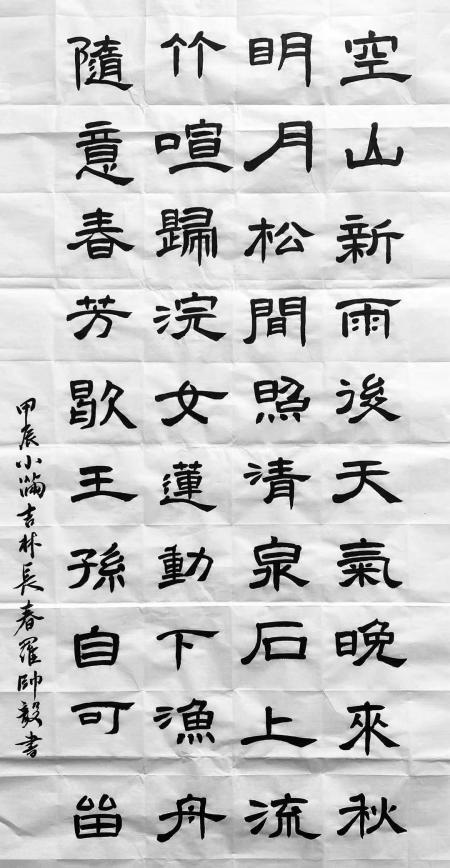 空山新雨後天氣晚來秋
明月松間照清泉石上流
竹喧歸浣女蓮動下漁舟
隨意春芳歇王孫自可畱
甲辰小滿吉林長春羅帥毅書